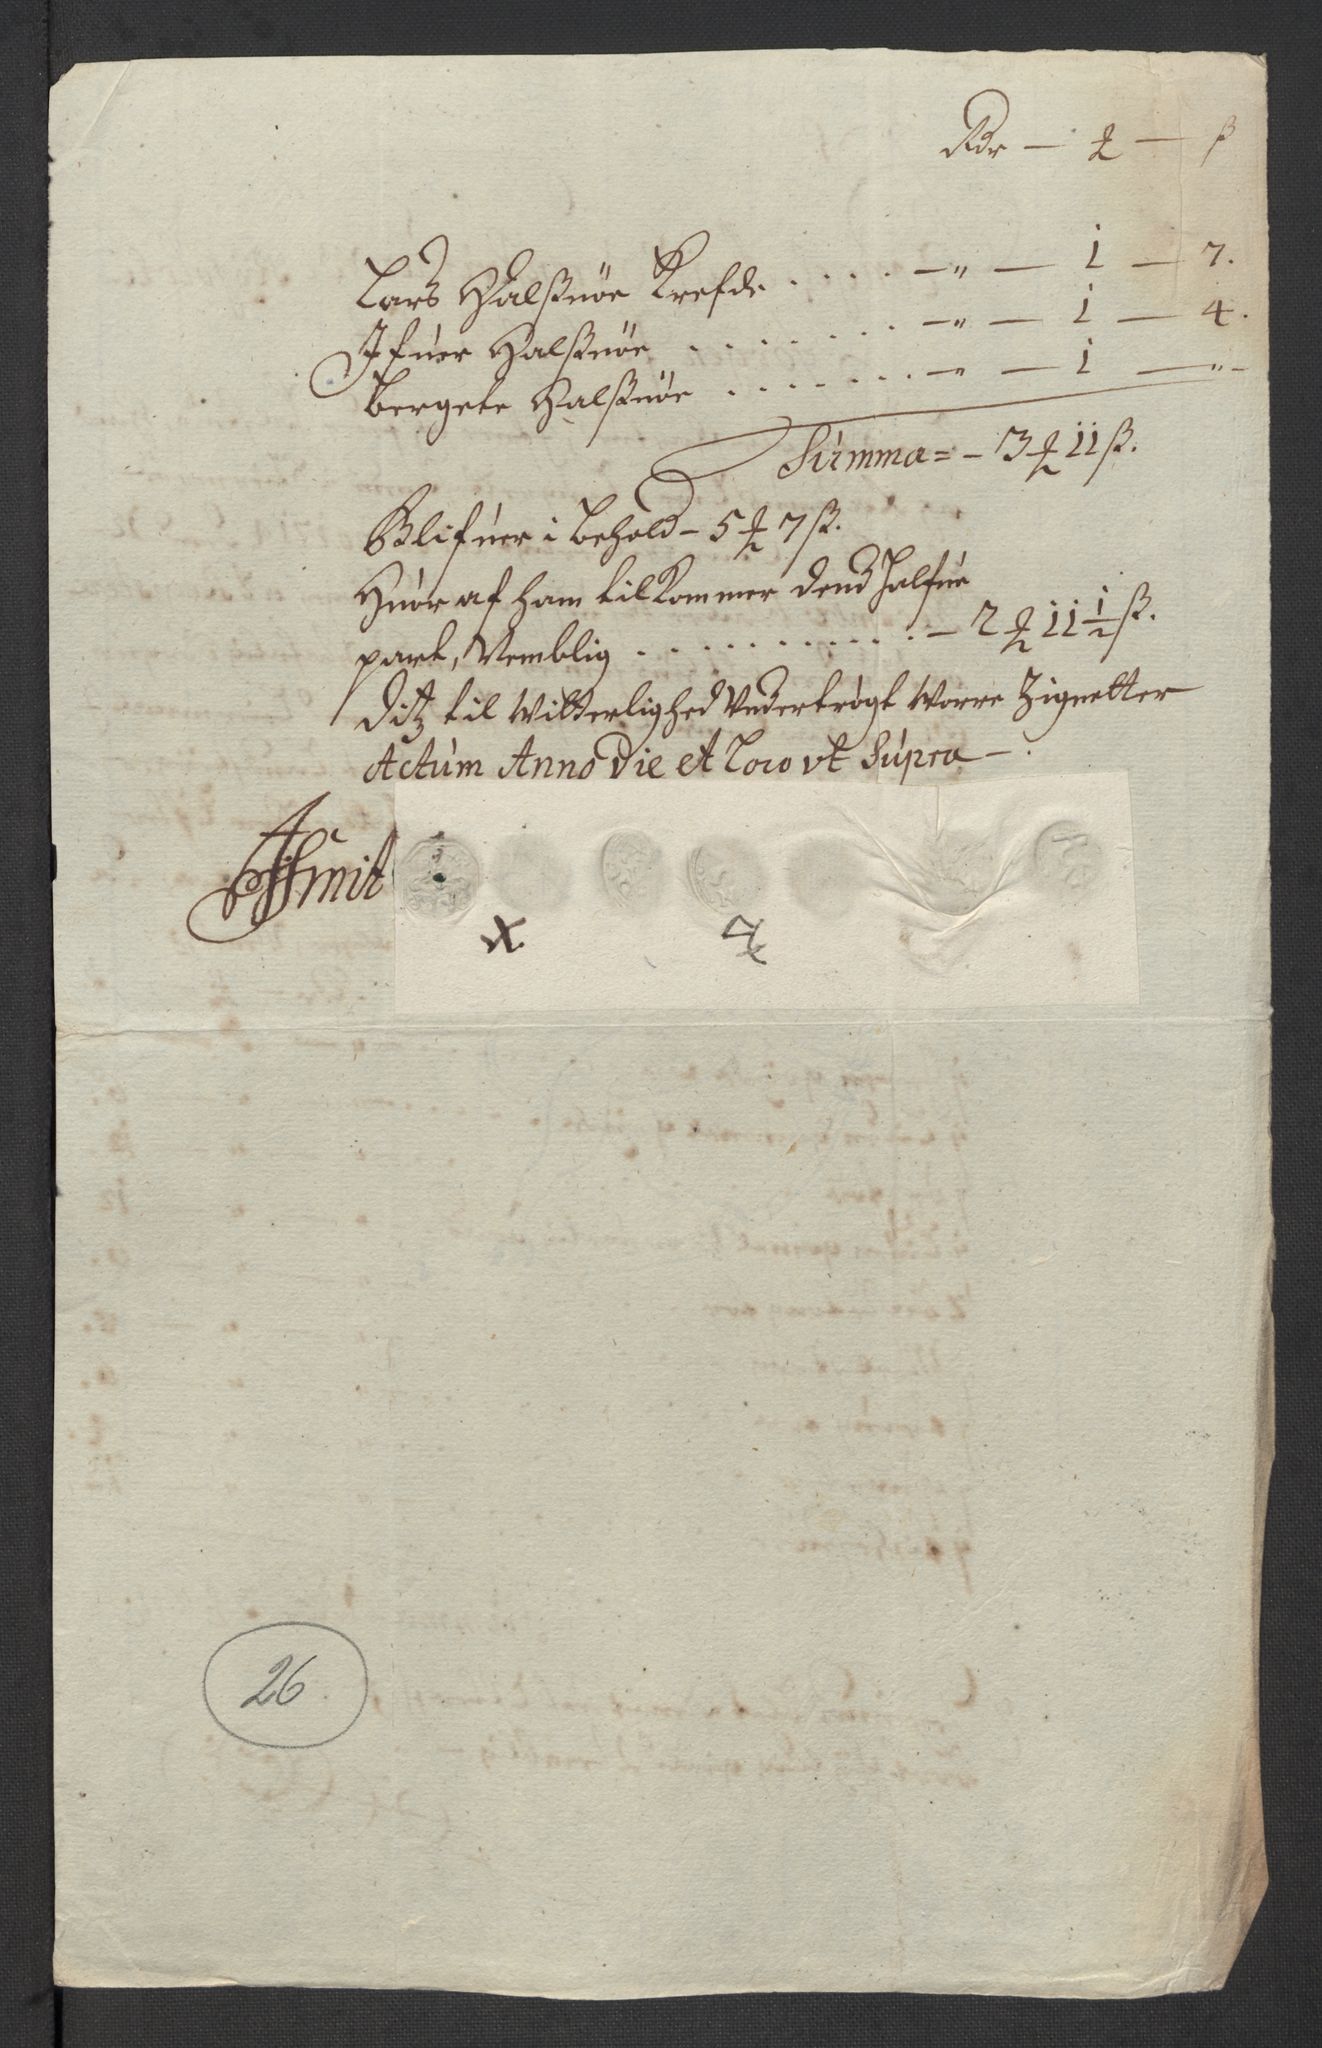 Rdr — ꝥ — ß
Lars Halsnöe Krefde . . . . — „ — 1 — 7.
Ifuer Halsnöe . . . . . . — „ — 1 — 4.
Bergete Halsnöe . . . . . . . — „ — 1 — „ —
Summa = — 3 ꝥ 11 ß.
Blifuer i behold — 5 ꝥ 7 ß.
Huor af ham tilkommer dend halfue
part, Nemblig . . . . . . . . . . — 2 ꝥ 11 1/2 ß.
Ditz til Witterlighed Undertrögt Worre Zignetter
Actum Anno Die et Loco ut Supra — .
Smit
26.